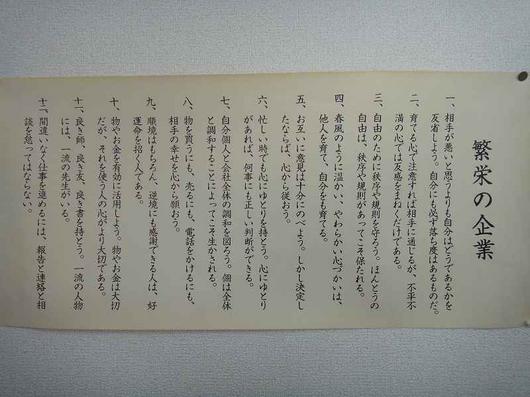 繁栄の企業
一、相手が悪いと思うよりも自分はどうであるかを
反省しよう。自分にも必ず落ち度はあるものだ。
二、育てる心で注意すれば相手に通じるが、不平不
満の心では反感をまねくだけである。
三、自由のために秩序や規則を守ろう。ほんとうの
自由は、秩序や規則があってこそ保たれる。
四、春風のように温かい、やわらかい心づかいは、
他人を育て、自分をも育てる。
五、お互いに意見は十分にのべよう。しかし決定し
たならば、心から従おう。
六、忙しい時でも心にゆとりを持とう。心にゆとり
があれば、何事にも正しい判断ができる。
七、自分個人と会社全体の調和を図ろう。個は全体
と調和することによってこそ生かされる。
八、物を買うにも、売るにも、電話をかけるにも、
相手の幸せを心から願おう。
九、順境はもちろん、逆境にも感謝できる人は、好
運命を招く人である。
十、物やお金を有効に活用しよう。物やお金は大切
だが、それを使う人の心がより大切である。
十一、良き師、良き友、良き書を持とう。一流の人物
には、一流の先生がいる。
十二、間違いなく仕事を進めるには、報告と連絡と相
談を怠ってはならない。